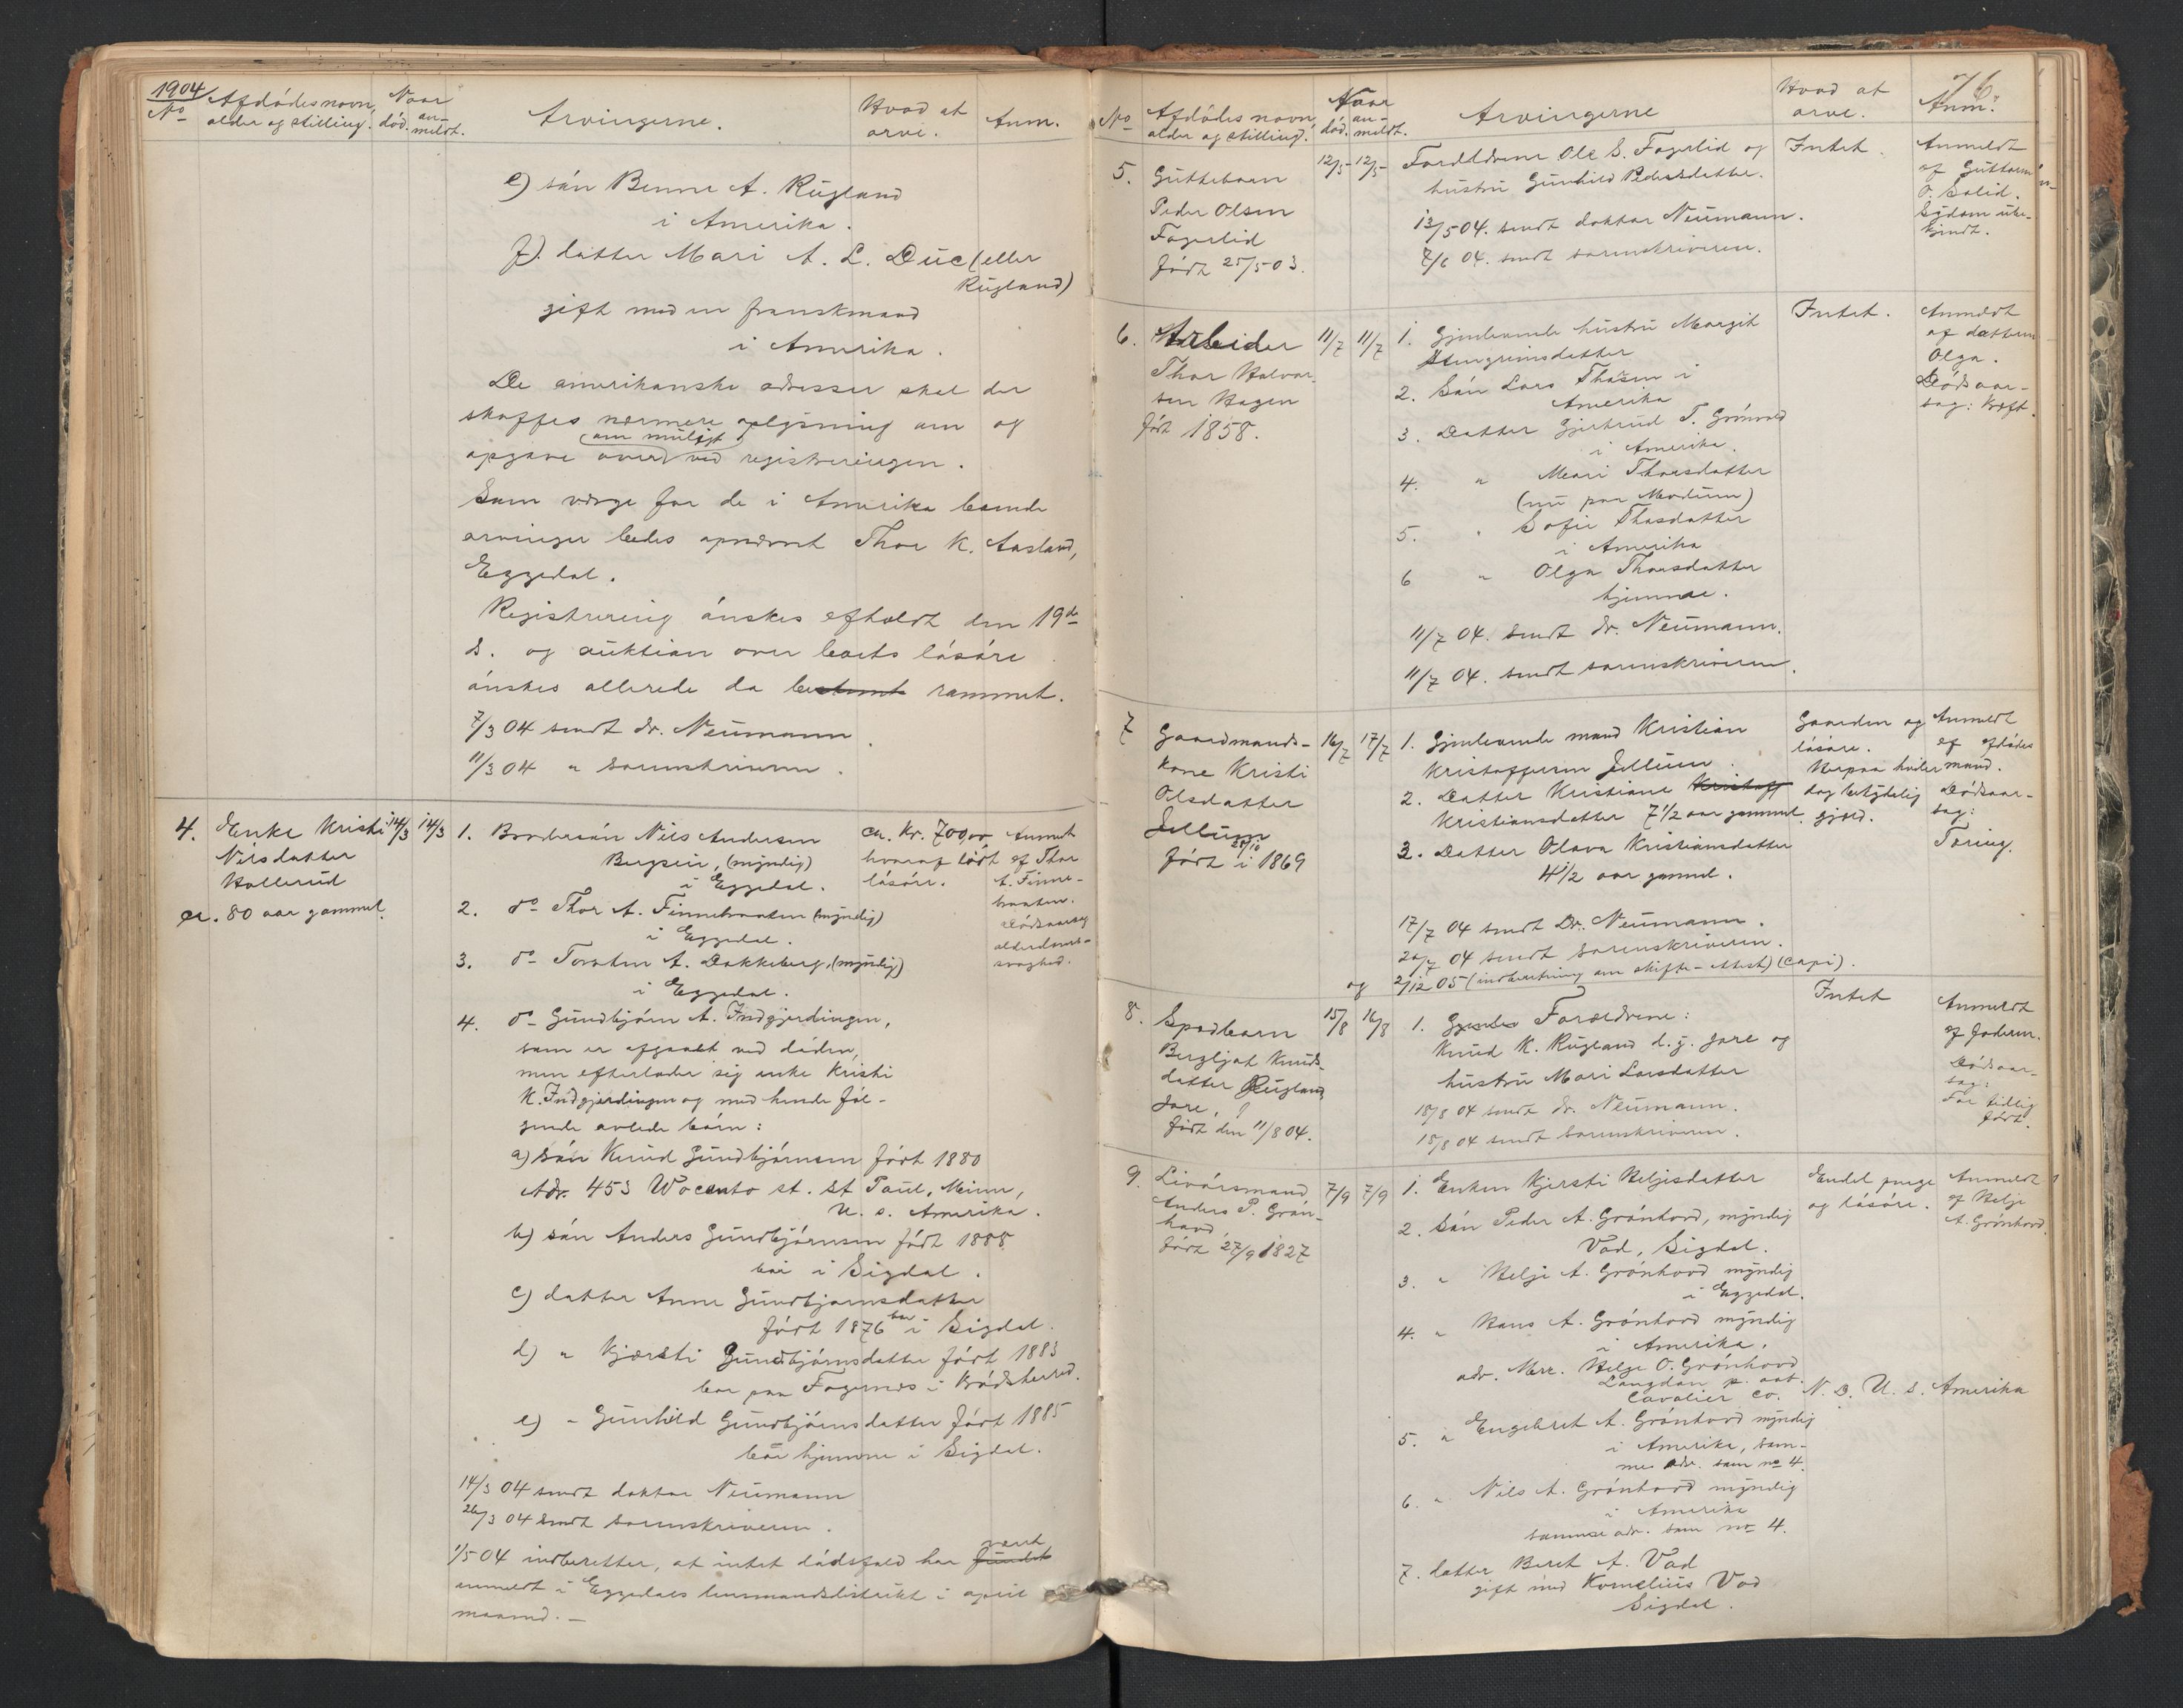 1904
No Afdødes navn, alder og stilling. Naar død. an-meldt. Arvingerne. Hvad at arve. Anm.
e) søn Benne A. Rugland
i Amerika.
f). datter Mari A. L. Duc (eller
Rugland)
gift med en franskmand
i Amerika.
De amerikanske adresser skal der
skaffes nærmere oplysning om og
opgave over (om muligt) ved registreringen.
Som værge for de i Amerika boende
arvinger bedes opnævnt Thor K. Aasland,
Eggedal.
Registrering ønskes afholdt den 19de
d. og auktion over boets løsøre
ønskes allerede da berammet.
7/3 04 sendt dr. Neumann.
11/3 04 " sorenskriveren.
4. Enke Kristi
Nilsdatter
Hollerud
ca. 80 aar gammel.
14/3 14/3
1. Brodersøn Nils Andersen
Bergsein, (myndig)
i Eggedal.
2. do Thor A. Finnebraaten (myndig)
i Eggedal.
3. do Torsten A. Dokkeberg, (myndig)
i Eggedal.
4. do Gundbjørn A. Indgjerdingen,
som er afgaaet ved døden,
men efterlader sig enke Kristi
K. Indgjerdingen og med hende føl-
gende avlede børn:
a) søn Knud Gundbjørnsen født 1880
Adr. 453 Wocouto st. St Paul, Minn,
U. S. Amerika.
b) søn Anders Gundbjørnsen født 1888
bor i Sigdal.
c) datter Anne Gundbjørnsdatter
født 1876 bor i Sigdal.
d) " Kjersti Gundbjørnsdatter født 1883
bor paa Fagernes i Krødsherred.
e) " Gunhild Gundbjørnsdatter født 1885
bor hjemme i Sigdal.
14/3 04 sendt doktor Neumann
26/3 04 sendt sorenskriveren.
1/5 04 indberetter, at intet dødsfald har fundet været
anmeldt i Eggedals lensmandsdistrikt i april
maaned. —
ca. Kr. 700,00
hvoraf lidt
løsøre.
Anmeldt
af Thor
A. Finne-
braaten.
Dødsaarsag
alderdoms-
svaghed.
76
No Afdødes navn, alder og stilling. Naar død. an-meldt. Arvingerne Hvad at arve. Anm.
5. Guttebarn
Peder Olsen
Fagerlid
født 25/5 03.
12/5 12/5
Forældrene Ole S. Fagerlid og
hustru Gunhild Pedersdatter.
13/5 04. sendt doktor Neumann.
7/6 04. sendt sorenskriveren.
Intet.
Anmeldt
af Guttorm
O. Solid.
Sygdom ube-
kjendt.
6. Arbeider
Thor Halvor-
sen Hagen
født 1858.
11/7 11/7
1. Gjenlevende hustru Margit
Stengrimsdatter
2. Søn Lars Thorsen i
Amerika
3. Datter Gjertrud T. Grönvold
i Amerika.
4. " Mari Thorsdatter
(nu paa Modum)
5. " Sofie Thorsdatter
i Amerika
6 " Olga Thorsdatter
hjemme.
11/7 04. sendt dr. Neumann.
11/7 04. sendt sorenskriveren.
Intet.
Anmeldt
af datteren
Olga.
Dødsaar-
sag: kræft.
7 Gaardmands-
kone Kristi
Olsdatter
Jellum
født 28/10 i 1869
16/7 17/7
1. Gjenlevende mand Kristian
Kristoffersen Jellum.
2. Datter Kristiane Kristoff
Kristiansdatter 7 1/2 aar gammel.
3. Datter Olava Kristiansdatter
4 1/2 aar gammel.
17/7 04 sendt Dr. Neumann.
20/7 04 sendt sorenskriveren.
og 2/12 05 (indberetning om skifte-attest) (Capi).
Gaarden og
løsøre.
Herpaa hviler
dog betydelig
gjæld.
Anmeldt
af afdødes
mand.
Dødsaar-
sag:
Tæring.
8. Spædbarn
Bergljot Knuds-
datter Rugland
Jare,
født den 11/8 04.
15/8 16/8
1. Forældrene:
Knud K. Rugland d. y. Jare og
hustru Mari Larsdatter
18/8 04 sendt dr. Neumann.
18/8 04 sendt sorenskriveren.
Intet
Anmeldt
af faderen.
Dødsaar-
sag:
For tidlig
født.
9. Livørsmand
Anders P. Grøn-
hovd
født 27/9 1827
7/9 7/9
1. Enken Kjersti Helgesdatter
2. Søn Peder A. Grønhovd, myndig
Vad, Sigdal.
3. " Helge A. Grønhovd myndig
i Eggedal.
4. " Hans A. Grønhovd myndig
i Amerika.
adr. Mrr. Helge O. Grønhovd
Langdon p. aat.
Cavalier Co. N. D. U. S. Amerika
5. " Engebret A. Grønhovd myndig
i Amerika, sam-
me adr. som no 4.
6. " Nils A. Grønhovd myndig
i Amerika
samme adr. som no 4.
7. datter Beret A. Vad
gift med Kornelius Vad
Sigdal.
Endel penge
og løsøre.
Anmeldt
af Helge
A. Grønhovd.